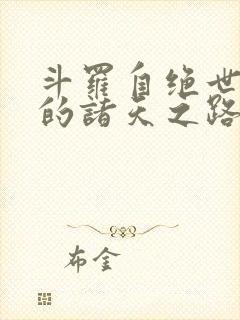 斗羅自绝世
的諸天之路
布金